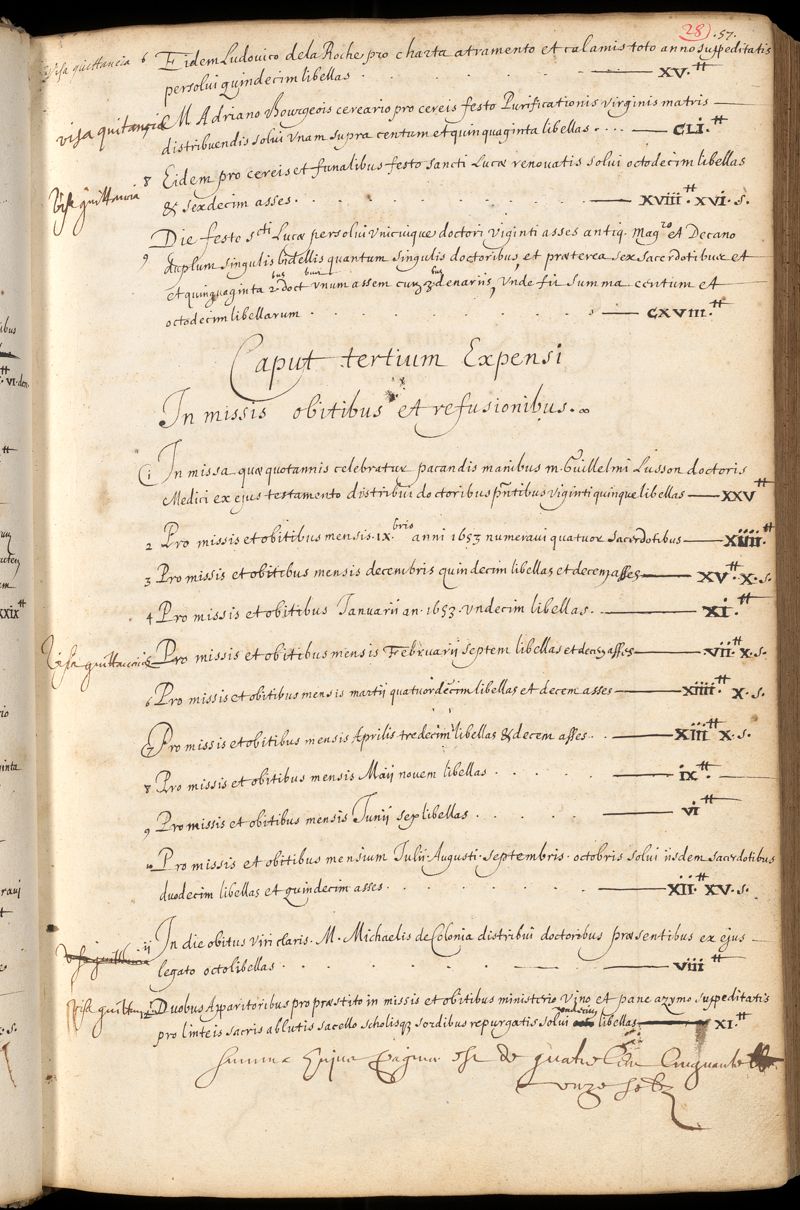 28) .57.
Visa quittancia 6 Eidem Ludovico de la Roche pro charta atramento et calamis toto anno suppeditatis
persolui quindecim libellas . . . . . XV.₶
visa quitancia M Adriano Bourgeois cereario pro cereis festo Purificationis virginis matris
distribuendis solui Vnam supra centum et quinquaginta libellas . . . . CLI.₶
Visa quittancia 8 Eidem pro cereis et funalibus festo sancti Lucæ renovatis solui octodecim libellas
& sexdecim asses . . . . . . XVIII.₶ XVI. s.
9 Die festo scti Lucæ persolui Vnicuique doctori Viginti asses antiq. magro et Decano
duplum singulis bidellis quantum singulis doctoribus, et præterea sex sacerdotibus et
et quinquaginta 2bus doct vnum assem cum 3bus denariis, Vnde fit summa centum et
octodecim libellarum . . . . . CXVIII.₶
Caput tertium Expensi
In missis obitibus et refusionibus.
1 In missa quæ quotannis celebratur pacandis manibus m. Guillelmi Lusson doctoris
Medici ex ejus testamento distribui doctoribus pñtibus viginti quinque libellas XXV₶
2 Pro missis et obitibus mensis .IX.bris anni 1653 numeraui quatuor sacerdotibus XIIII.₶
3 Pro missis et obitibus mensis decembris quindecim libellas et decem asses XV.₶ X. s.
4 Pro missis et obitibus Januarii an. 1653. Vndecim libellas. XI.₶
Visa quittanciis 5 Pro missis et obitibus mensis Februarii septem libellas et decem asses VII.₶ X. s.
6 Pro missis et obitibus mensis martii quatuordecim libellas et decem asses XIIII.₶ X. s.
7 Pro missis et obitibus mensis Aprilis tredecim libellas & decem asses . . XIII.₶ X. s.
8 Pro missis et obitibus mensis Maij novem libellas . . . . IX.₶
9 Pro missis et obitibus mensis Junij sex libellas . . . . VI₶
10 Pro missis et obitibus mensium Julii. Augusti. septembris. octobris solui iisdem sacerdotibus
duodecim libellas et quindecim asses . . . . . XII.₶ XV. s.
visa quittancia 11 In die obitus viri claris. M. Michaelis de Colonia distribui doctoribus præsentibus ex ejus
legato octo libellas . . . . . . VIII₶
Visa quittancia 12 Duobus Apparitoribus pro præstito in missis et obitibus ministerio Vino et pane azymo suppeditatis
pro linteis sacris ablutis sacello scholisq; sordibus repurgatis solui undecim libellas XI.₶
Summa hujus pagina est de quatre Cens Cinquante
unze solz